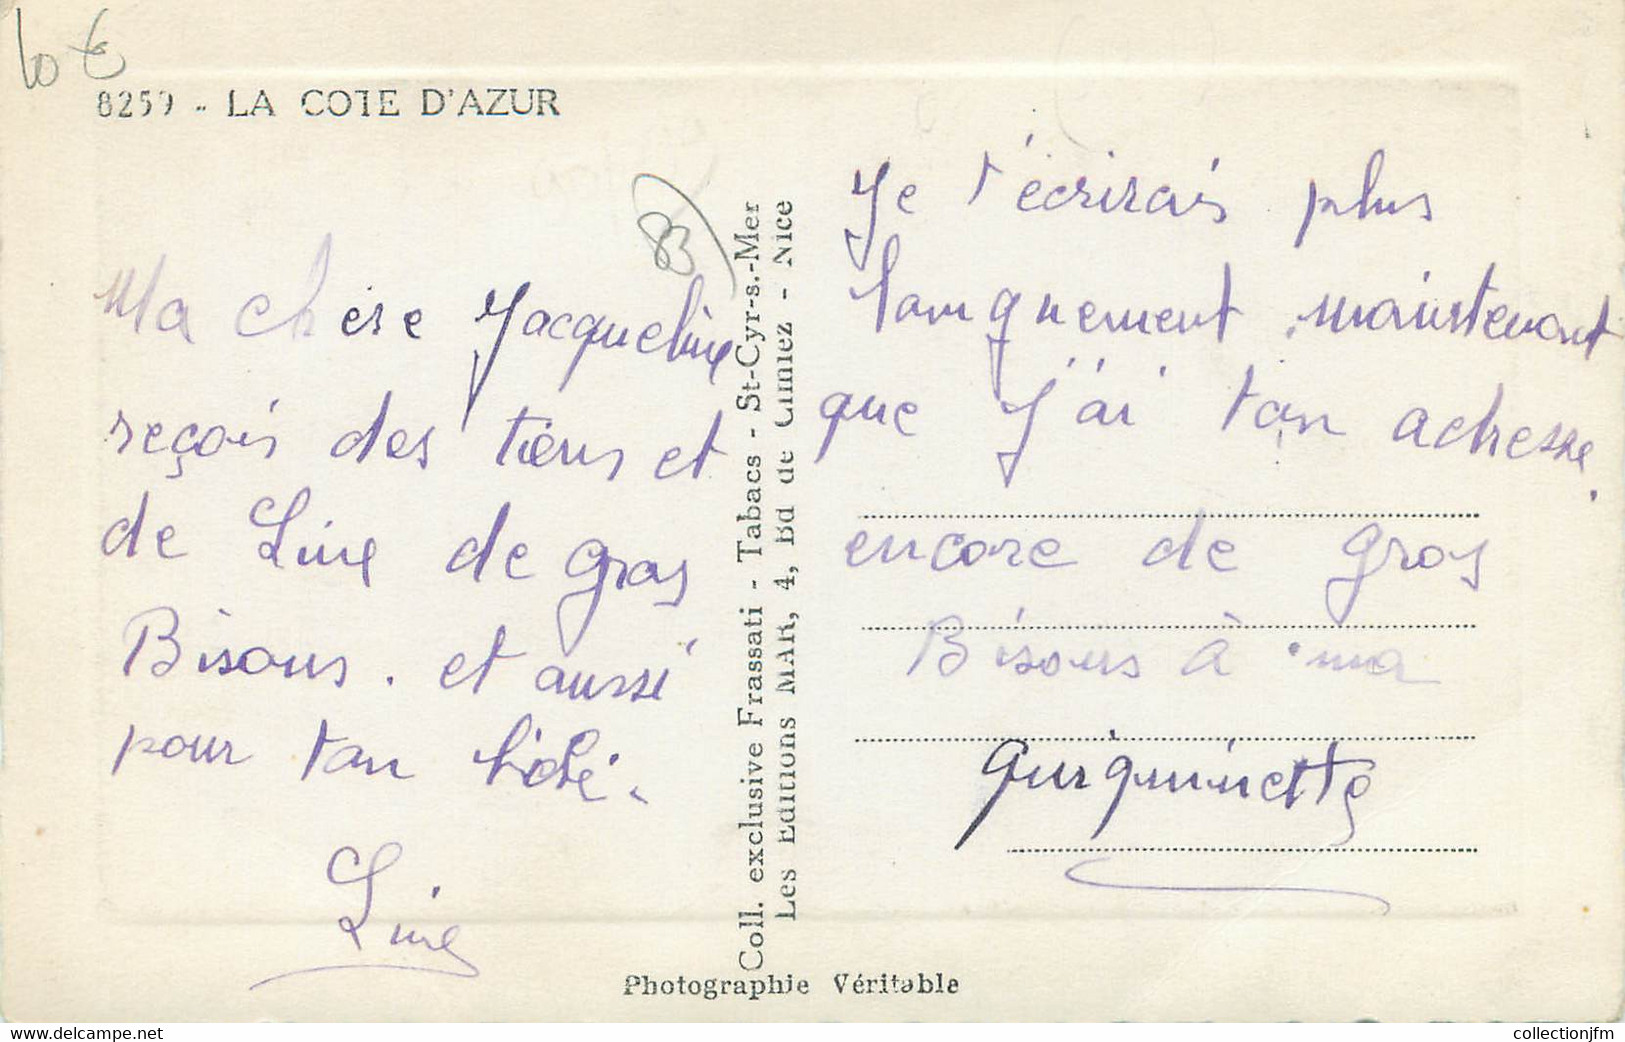 10 €
8259 - LA COTE D'AZUR
83
Ma chère Jacqueline
reçois des tiens et
de Line de gros
Bisous. et aussi
pour ton bébé.
Line
Coll. exclusive Frassati - Tabacs - St-Cyr-s.-Mer
Les Editions MAR, 4, Bd de Cimiez - Nice
Je t'écrirais plus
longuement maintenant
que j'ai ton adresse.
encore de gros
Bisous à ma
Photographie Véritable
collectionjfm